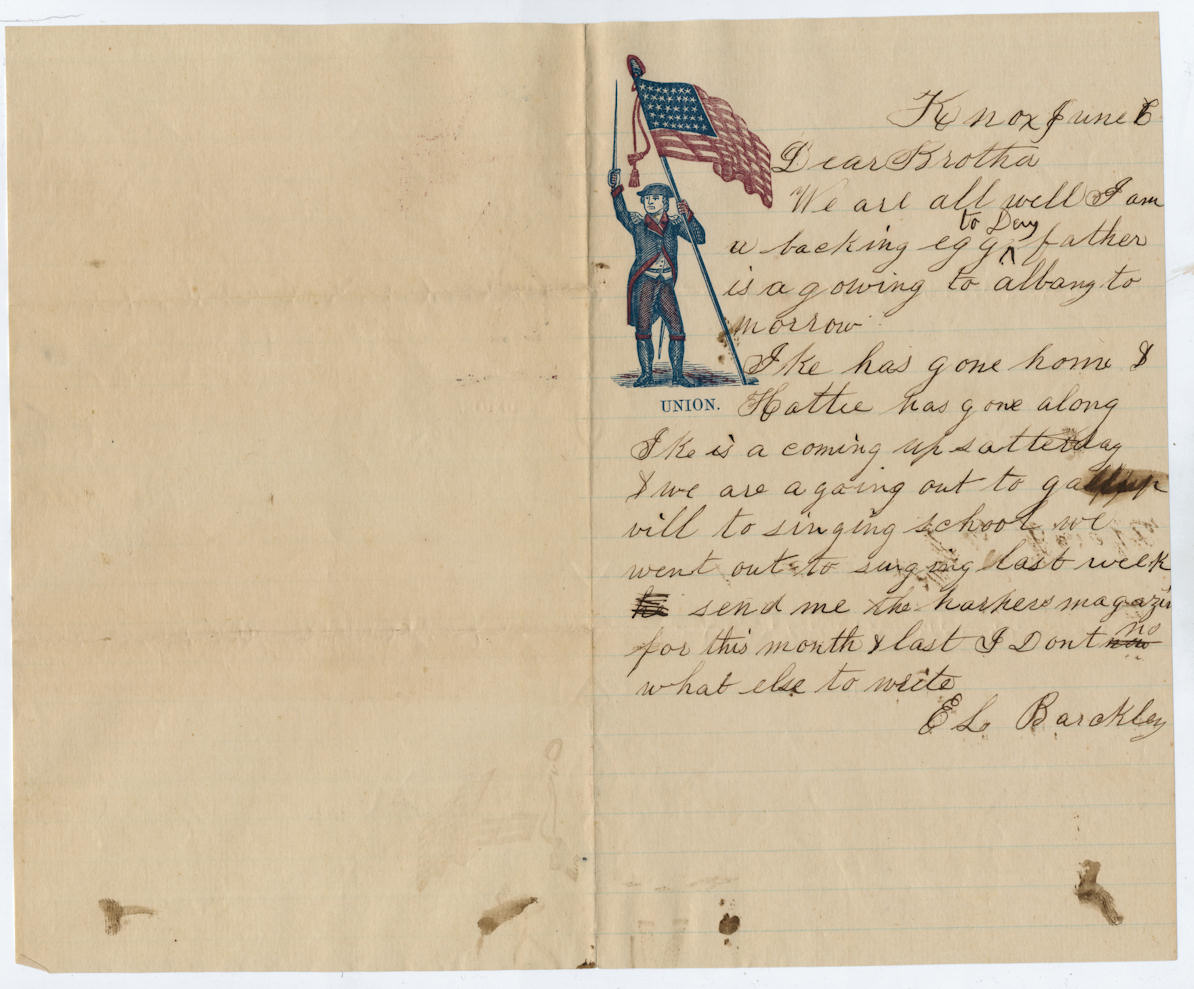 Knox June 6
Dear Brotha
We are all well I am
a backing egg to Day father
is a gowing to albany to
morrow
Ike has gone home &
UNION.
Hattie has gone along
Ike is a coming up satterday
& we are a going out to gallup
vill to singing school we
went out to singing last week
send me the harpers magazin
for this month & last I Dont no
what else to write
E L Barckley